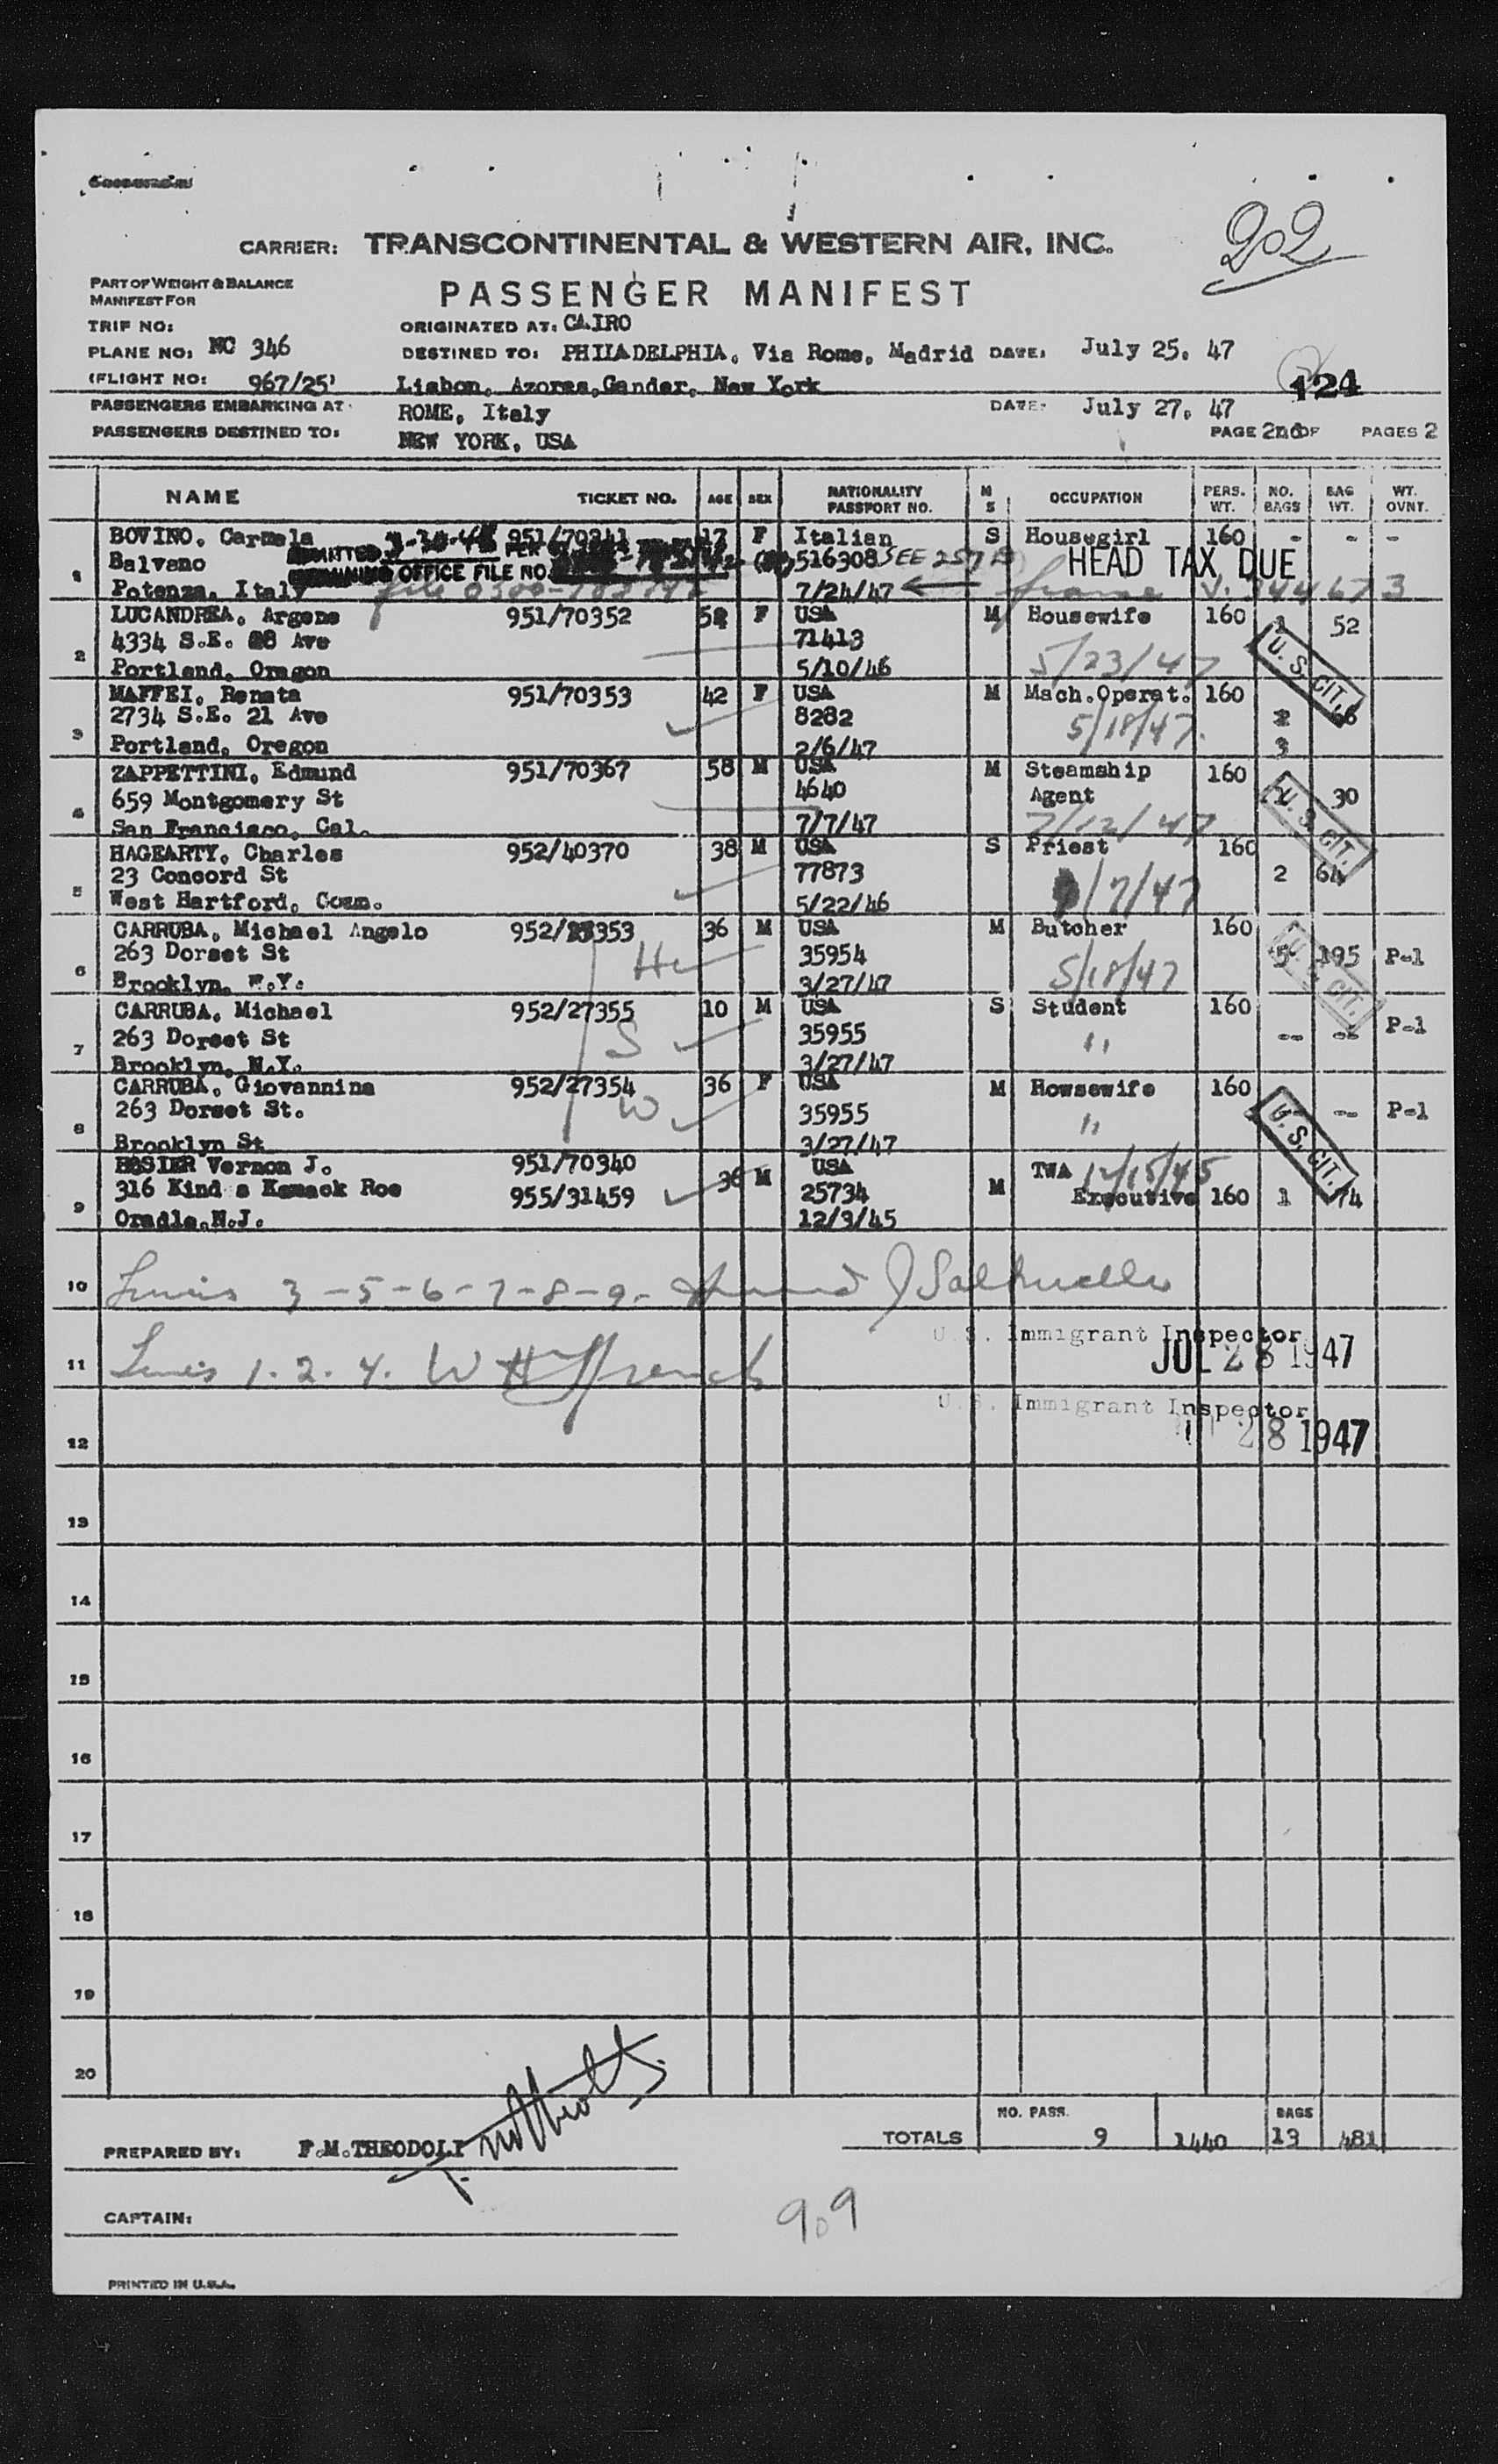 CARRIER: TRANSCONTINENTAL & WESTERN AIR, INC.
202
PART OF WEIGHT & BALANCE
MANIFEST FOR
PASSENGER MANIFEST
TRIP NO:
ORIGINATED AT: CAIRO
PLANE NO: NC 346
DESTINED TO: PHILADELPHIA, Via Rome, Madrid DATE: July 25, 47
(FLIGHT NO: 967/25'
Lisbon, Azores, Gander, New York
124
PASSENGERS EMBARKING AT: ROME, Italy DATE: July 27, 47
PASSENGERS DESTINED TO: NEW YORK, USA PAGE 2nd OF PAGES 2
NAME TICKET NO. AGE SEX NATIONALITY PASSPORT NO. M S OCCUPATION PERS. WT. NO. BAGS BAG WT. WT. OVNT.
1 BOVINO, Carmela 951/70341 17 F Italian S Housegirl 160 - - -
Balvano ADMITTED PER 516308 SEE 257 HEAD TAX DUE
OFFICE FILE NO.
Potenza, Italy 7/24/47
2 LUCANDREA, Argene 951/70352 52 F USA M Housewife 160 1 52
4334 S.E. 28 Ave 71413
Portland, Oregon 5/10/46 5/23/47 U. S. CIT.
3 MAFFEI, Renata 951/70353 42 F USA M Mach.Operat. 160
2734 S.E. 21 Ave 8282 5/18/47. 2
Portland, Oregon 2/6/47 3
4 ZAPPETTINI, Edmund 951/70367 58 M USA M Steamship 160
659 Montgomery St 4640 Agent 2 30
San Francisco, Cal. 7/7/47 7/12/47 U. S. CIT.
5 HAGEARTY, Charles 952/40370 38 M USA S Priest 160
23 Concord St 77873 2 64
West Hartford, Conn. 5/22/46 /7/47
6 CARRUBA, Michael Angelo 952/27353 36 M USA M Butcher 160
263 Dorset St H 35954 5 195 P-1
Brooklyn, N.Y. 3/27/47 5/18/47 U. S. CIT.
7 CARRUBA, Michael 952/27355 10 M USA S Student 160
263 Dorset St S 35955 " -- -- P-1
Brooklyn, N.Y. 3/27/47
8 CARRUBA, Giovannina 952/27354 36 F USA M Howsewife 160
263 Dorset St. W 35955 " -- P-1
Brooklyn St 3/27/47 U. S. CIT.
9 BOSIER Vernon J. 951/70340 36 M USA M TWA 12/15/45
316 Kind s Kamack Roe 955/31459 25734 Executive 160 1 74
Oradle,N.J. 12/3/45
10 3-5-6-7-8-9-
U. S. Immigrant Inspector
JUL 28 1947
11 1. 2. 4. W H ffrench
U. S. Immigrant Inspector
28 1947
12
13
14
15
16
17
18
19
20
NO. PASS. BAGS
TOTALS 9 1440 13 481
PREPARED BY: F.M.THEODOLI
CAPTAIN:
909
PRINTED IN U.S.A.